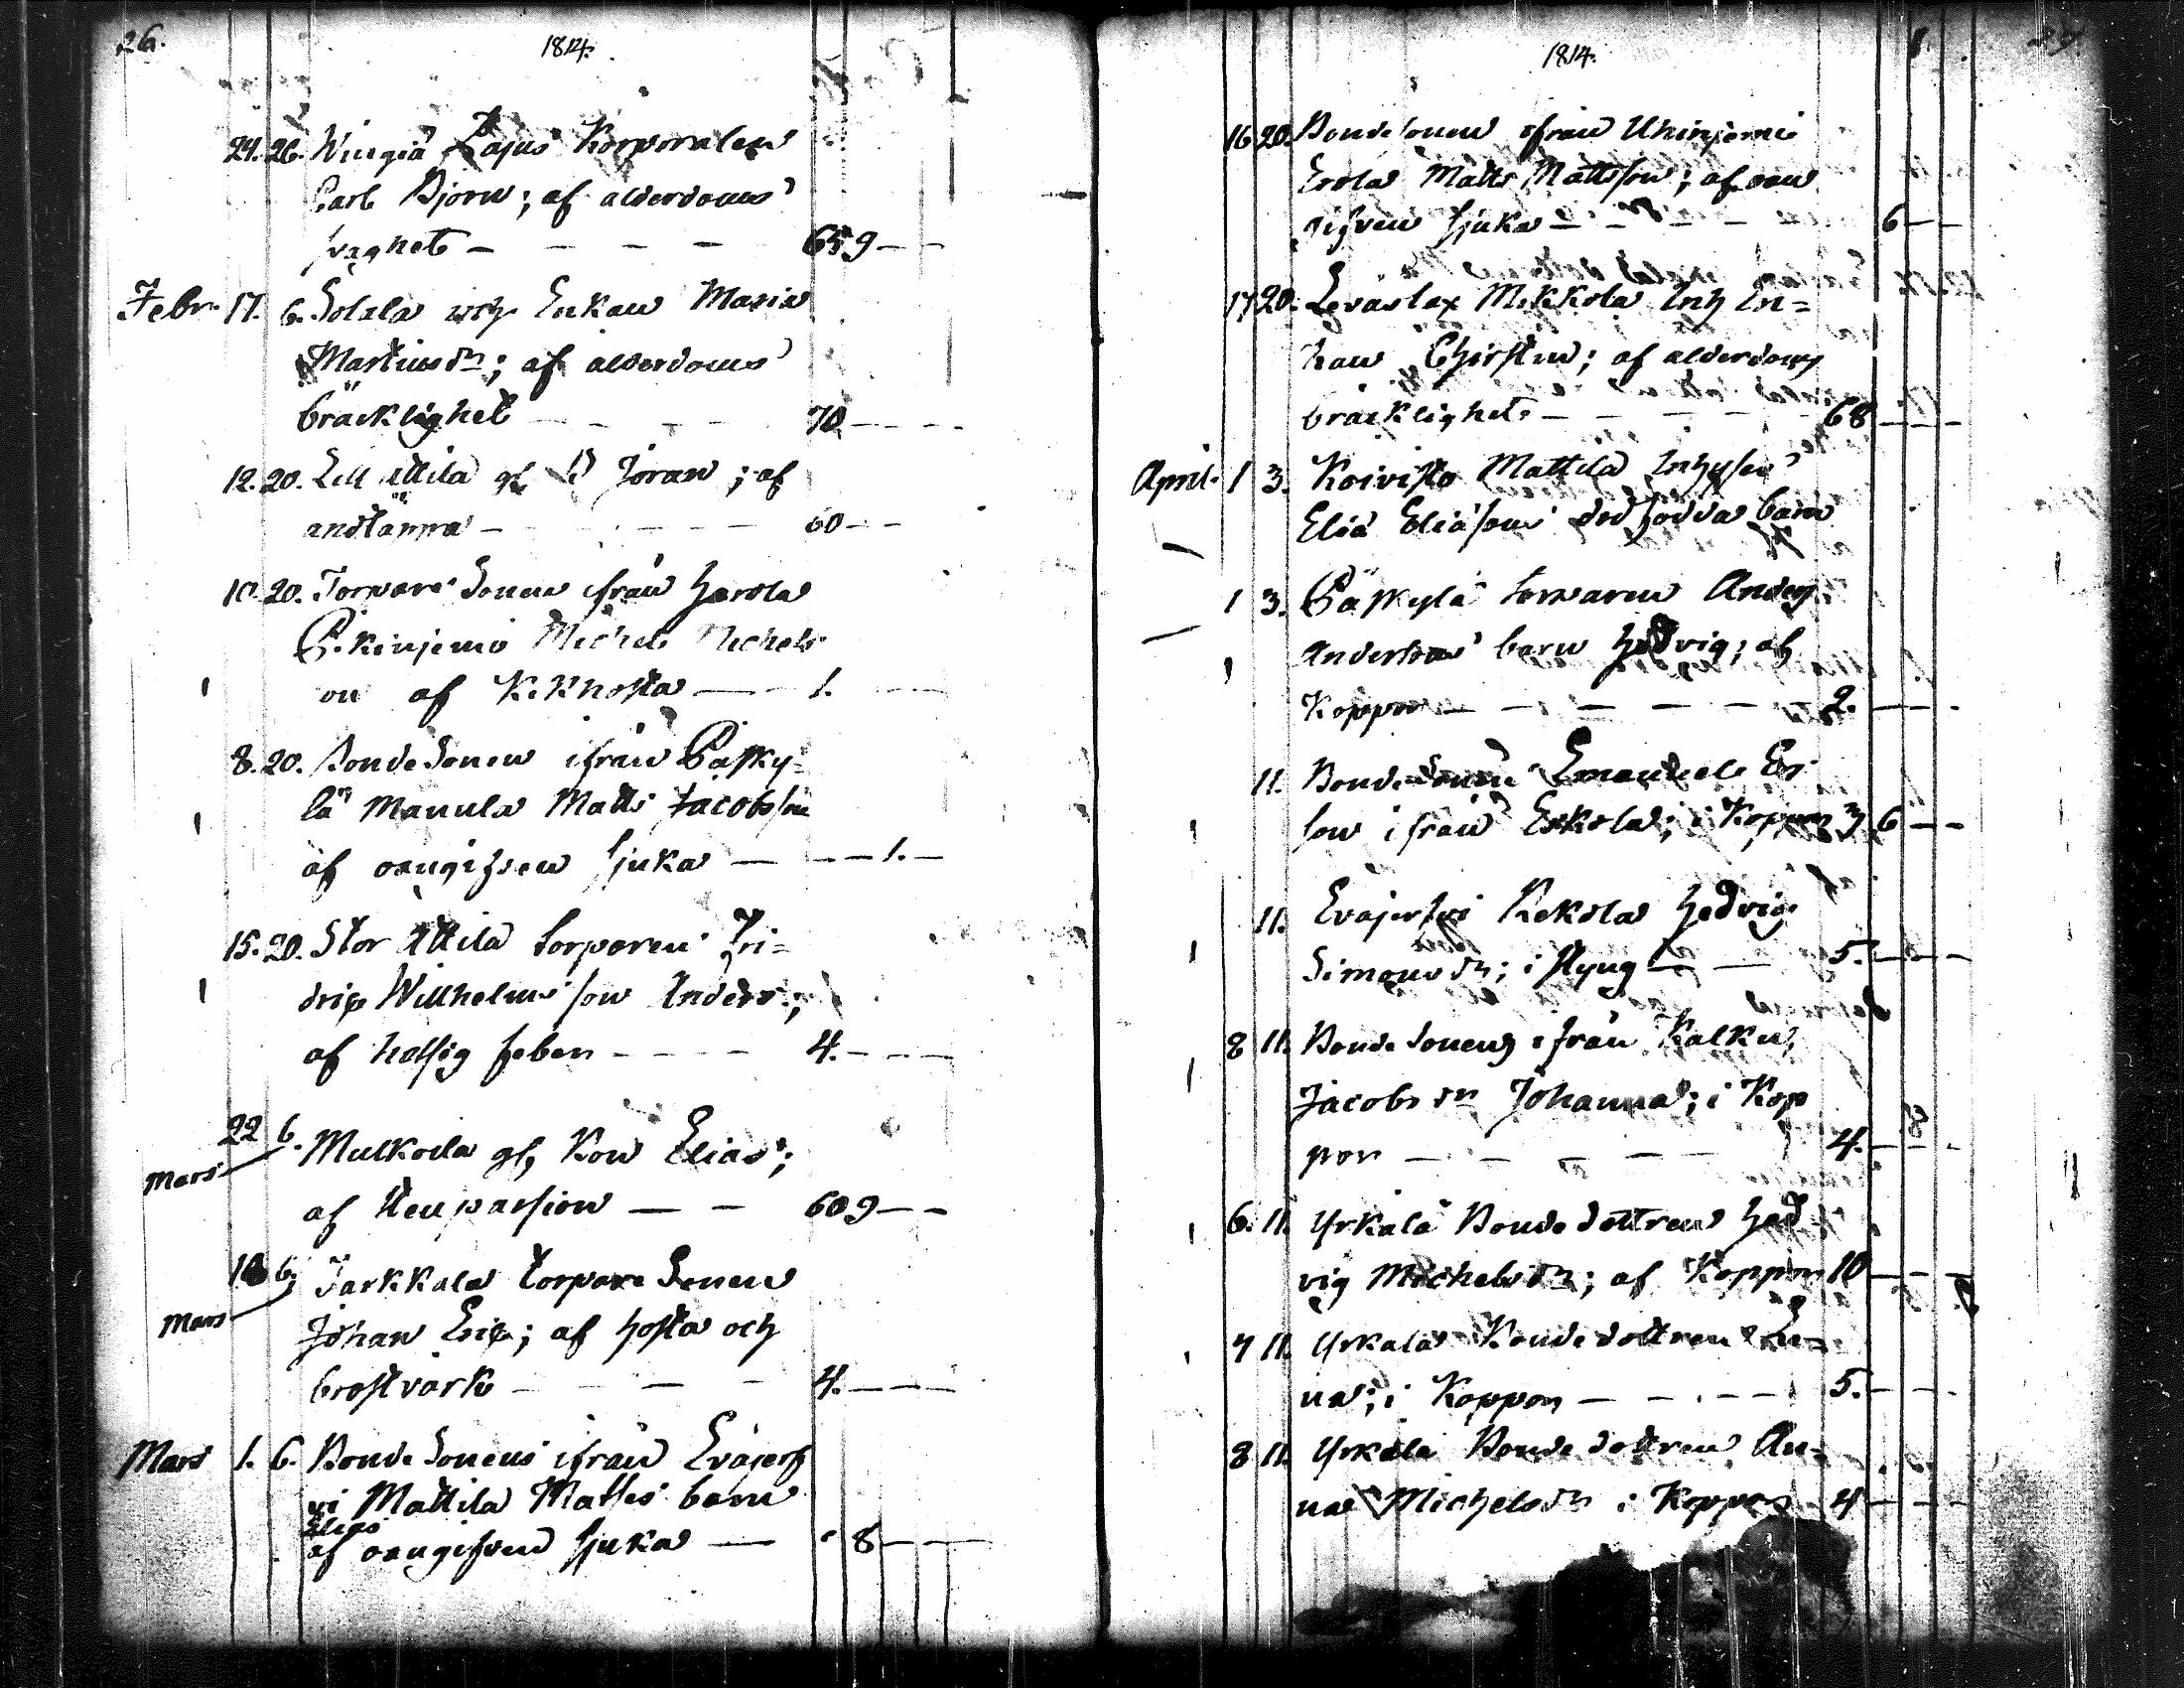 26.
1814.
24. 26. Wingiä Lajus Korporalen
Carl Björn; af alderdoms
svaghet — — — — 65 9 — —
Febr. 17. 6. Solala Enkan Maria
Martinsdr; af alderdoms
bräcklighet — — — — 70 — — —
12. 20. Lill Uttila Jöran; af
andtäppa — — — — 60 — —
10. 20. Torpare Sonen ifrån Harola
Pikinjemi Michel Michels
on af Kikhosta — — 1. — —
8. 20. Bonde Sonen ifrån Päpky-
lä Manula Matts Jacobsson
af oangifven sjuka — — — 1. —
15. 20. Stor Uttila torparen Fri-
dric Willhelms son Anders;
af hetsig feber — — — 4. — — —
22 6. Mulkoila gl, Kon Elias;
Mars
af Stenpassion — — 60 9 — —
10 6. Jarkkala torpare Sonen
Mars
Johan Eric; af hosta och
bröstvärk — — — — 4. — — —
Mars 1. 6. Bonde Sonens ifrån Eväjerf
vi Mattila Mattes barn
Elias
af oangifven sjuka — - 8 — —
1814.
16 20. Bonde sonen ifrån Ukinjemi
Erola Matts Mattsson; af oan
gifven sjuka — — — — 6 — —
17 20. Leväslax Mikkola Inh En-
kan Chirstin; af alderdoms
bräcklighet — — — — 68 — — —
April. 1 3. Koivisto Mattila Inhyses
Eliä Eliäsons dödfödda barn
1 3. Päpkylä torparen Anders
Andersons barn Hedvig; af
Koppor — — — — — 2. — — —
11. Bonde Sonen Emanuel
son ifrån Eskola; i Koppor 3 6 — —
11. Eväjerfvi Kekola Hedvig
Simonsdr; i Styng — — 5. — — —
8 11. Bonde Sonens ifrån Kalku
Jacobs dr Johanna; i Kop
por — — — — — 4. — — —
6. 11. Yrkälä Bonde dottren Hed
vig Michelsdr; af Koppor 10 — — —
7 11. Yrkälä Bonde dottren
na; i Koppor — — — — 5. — — —
8 11. Yrkälä Bonde dottren An-
na Michelsdr i Koppor 4 — — —